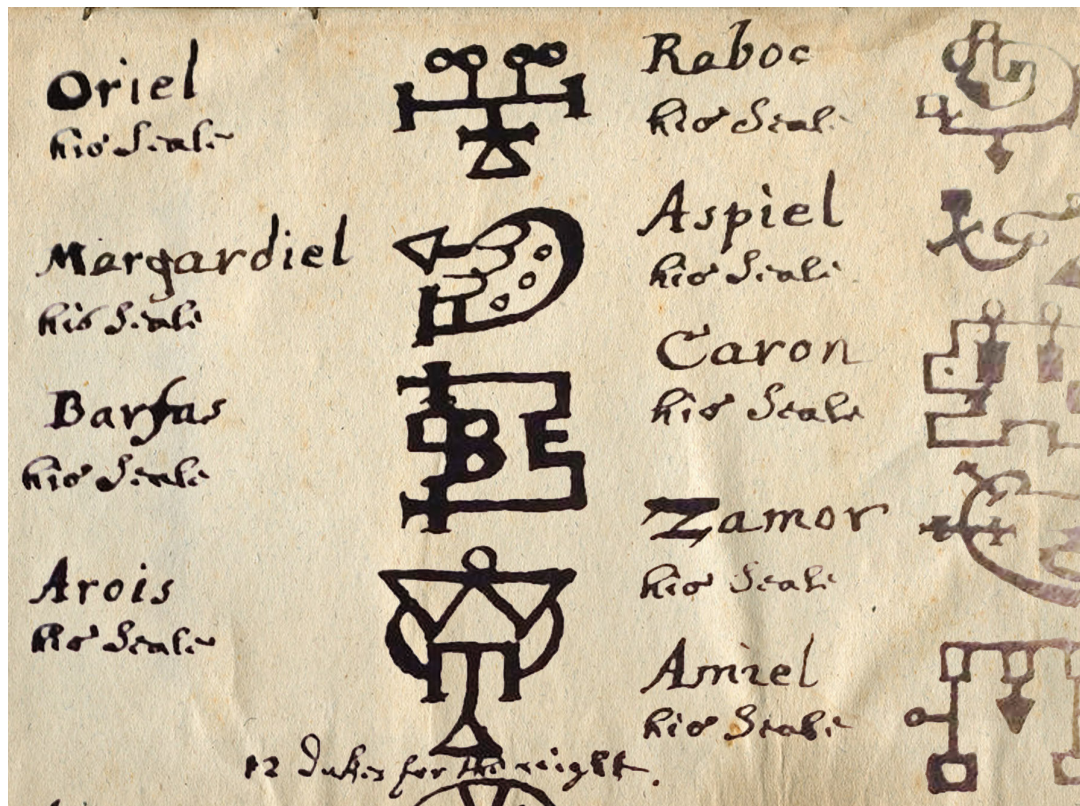 Oriel
his Seale
Margardiel
his Seale
Barfas
his Seale
Arois
his Seale
Raboc
his Seale
Aspiel
his Seale
Caron
his Seale
Zamor
his Seale
Amiel
his Seale
12 Dukes for the night.